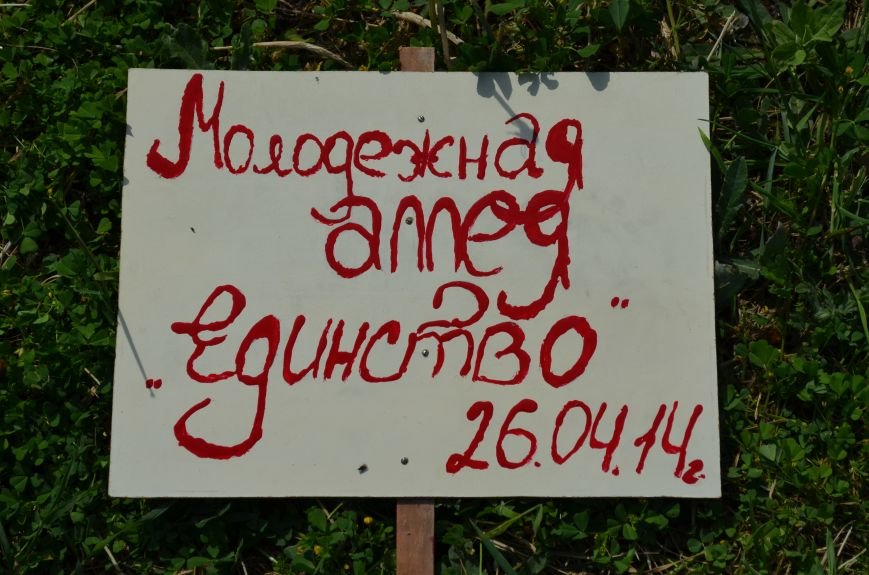 Молодежная
аллея
„Единство"
26.04.14г.